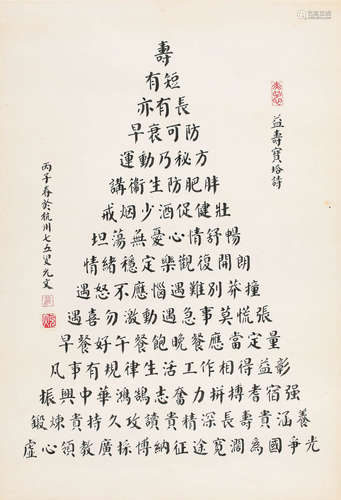 益壽寶塔詩
壽
有短
亦有長
早衰可防
運動乃秘方
講衛生防肥胖
戒烟少酒促健壯
坦蕩無憂心情舒暢
情緒穩定樂觀復開朗
遇怒不應惱遇難別莽撞
遇喜勿激動遇急事莫慌張
早餐好午餐飽晚餐應當定量
凡事有規律生活工作相得益彰
振興中華鴻鵠志奮力拼搏耆宿强
鍛煉貴持久攻讀貴精深長壽貴涵養
虛心領教廣採博納征途寬濶為國爭光
丙子春於杭州七五叟光文